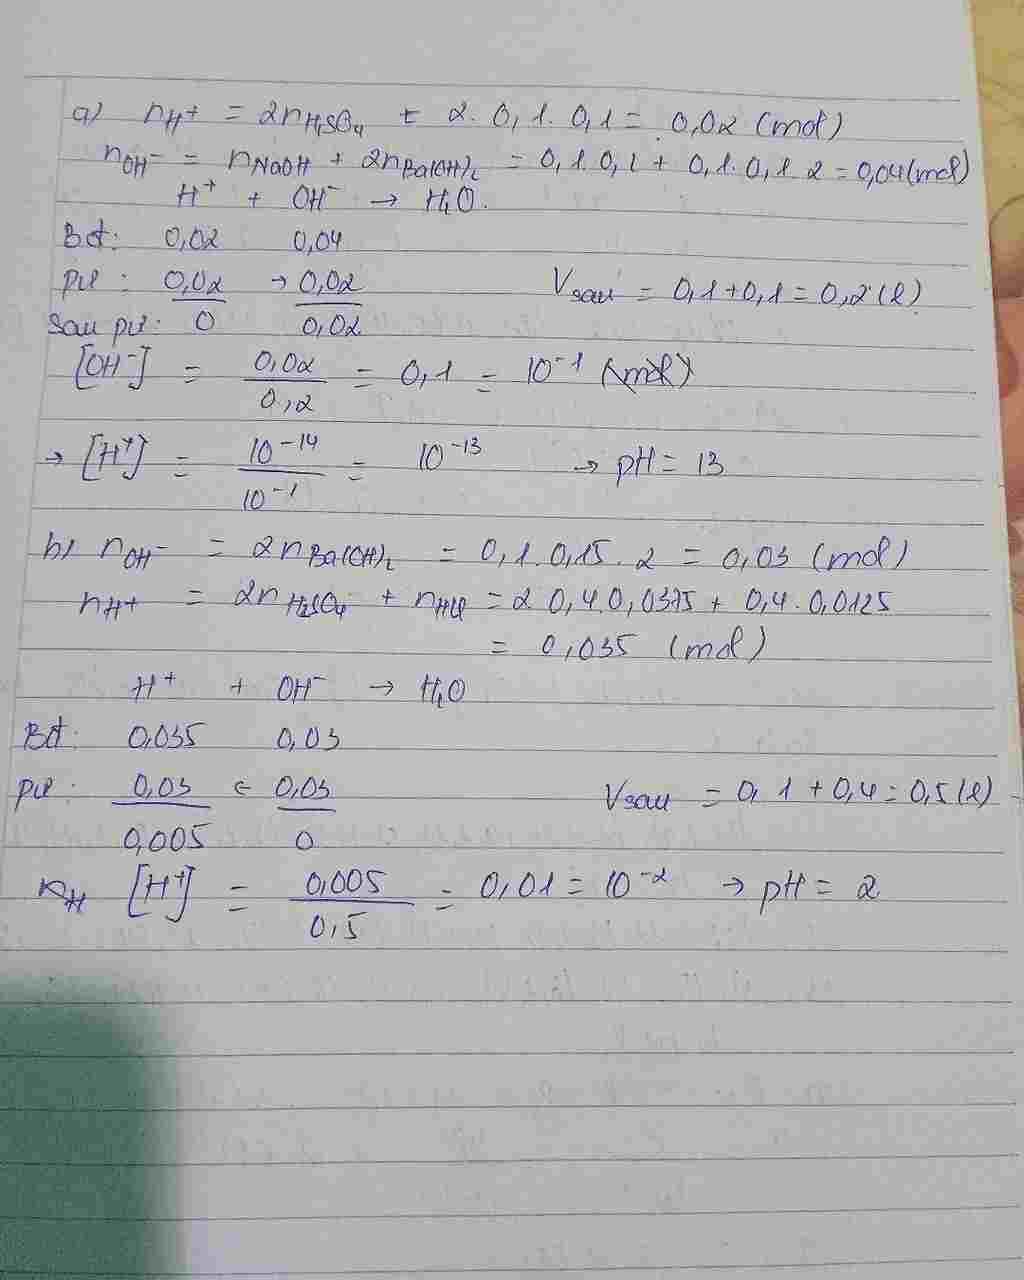 a) nH+ = 2nH2SO4 = 2. 0,1. 0,1 = 0,02 (mol)
nOH- = nNaOH + 2nBa(OH)2 = 0,1.0,1 + 0,1.0,1.2 = 0,04 (mol)
H+ + OH- → H2O.
Bđ: 0,02 0,04
pư: 0,02 → 0,02 Vsau = 0,1+0,1 = 0,2 (l)
Sau pư: 0 0,02
[OH-] = 0,02/0,2 = 0,1 = 10^-1 (mol)
→ [H+] = 10^-14/10^-1 = 10^-13 → pH = 13
b) nOH- = 2nBa(OH)2 = 0,1.0,15.2 = 0,03 (mol)
nH+ = 2nH2SO4 + nHCl = 2.0,4.0,0375 + 0,4.0,0125
= 0,035 (mol)
H+ + OH- → H2O
Bđ: 0,035 0,03
pư: 0,03 ← 0,03 Vsau = 0,1+0,4 = 0,5 (l)
0,005 0
[H+] = 0,005/0,5 = 0,01 = 10^-2 → pH = 2